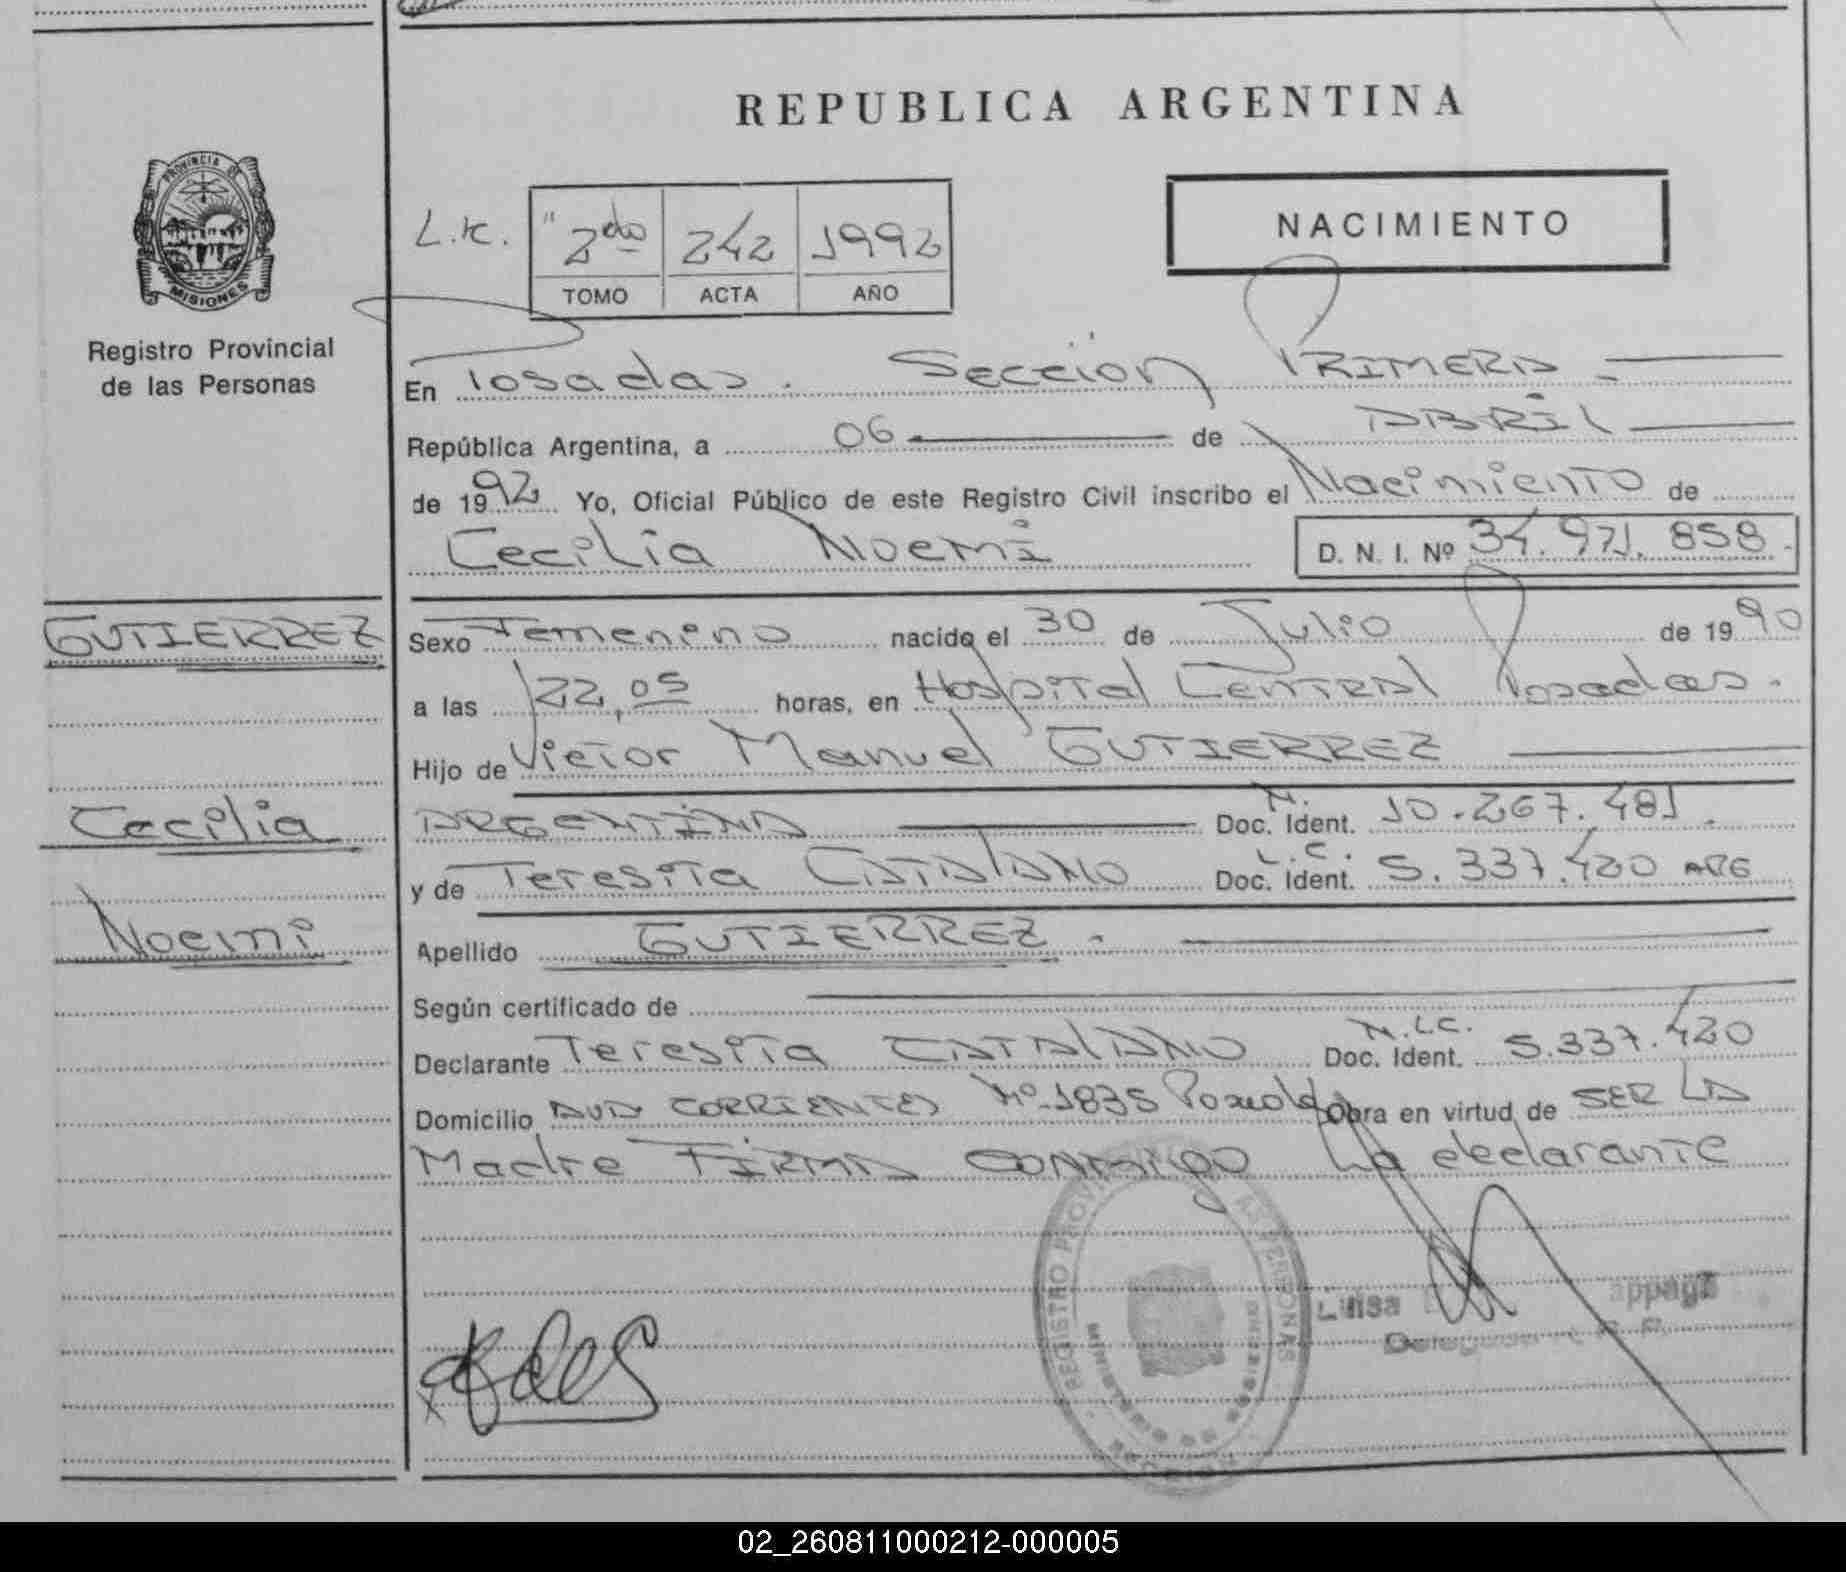 REPUBLICA ARGENTINA
PROVINCIA DE
MISIONES
Registro Provincial
de las Personas
NACIMIENTO
"2do 242 1992
TOMO ACTA AÑO
En Posadas. Sección PRIMERA
República Argentina, a 06 de ABRIL
de 1992 Yo, Oficial Público de este Registro Civil inscribo el Nacimiento de
Cecilia Noemi D. N. I. Nº 34.971.858.
GUTIERREZ
Sexo Femenino nacido el 30 de Julio de 1990
a las 22,05 horas, en Hospital CenTRAl Posadas.
Hijo de VicTor Manuel GUTIERREZ
Cecilia
ARGENTINA Doc. Ident. 10.267.481.
y de TeresiTa CATAlANO L.C. Doc. Ident. 5.337.420 ARG
Noemi
Apellido GUTIERREZ.
Según certificado de
Declarante TeresiTa CATAlANO Doc. Ident. 5.337.420
Domicilio AVDA CORRIENTES Nº 1835 Posadas Obra en virtud de SER LA
Madre FIRMA CONMigo La declaranTe
REGISTRO PROVINCIAL PERSONAS
02_260811000212-000005